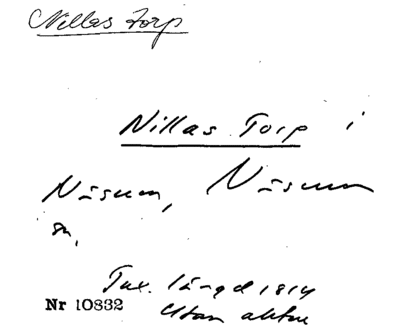 Nillas Torp
Nillas Torp i
Näsum, Näsum
sn,
Tax. längd 1814
Utan aktnr
Nr 10832